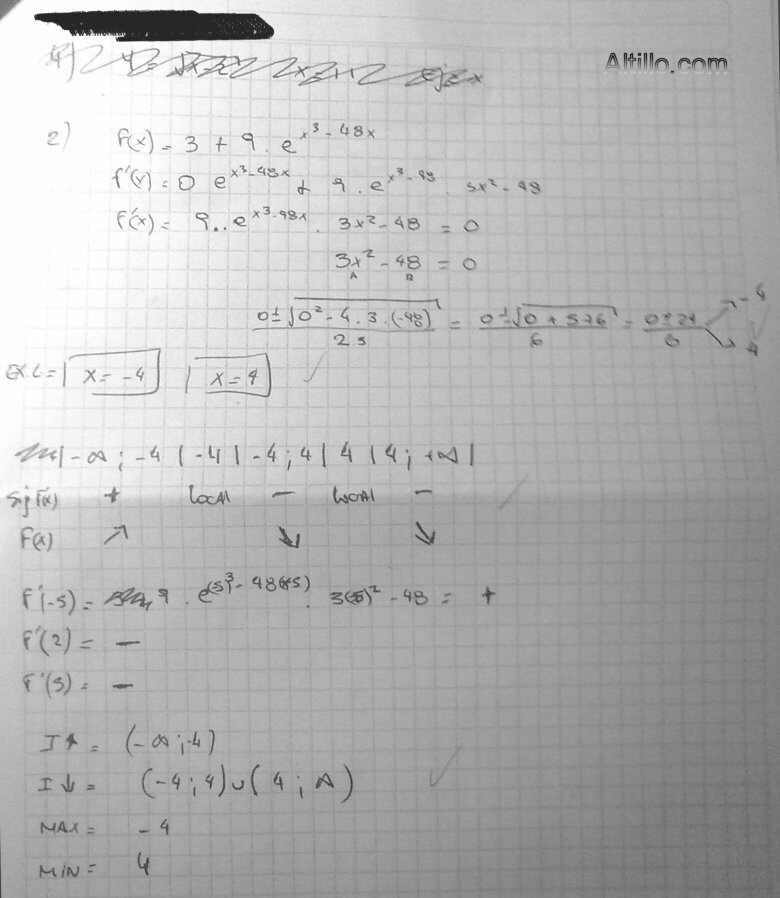 Altillo.com
2) f(x) = 3 + 9 . e^x³ - 48x
f'(x) = 0 e^x³-48x + 9 . e^x³-48 . 3x² - 48
f'(x) = 9 .. e^x³-48x . 3x² - 48 = 0
3x² - 48 = 0
A B
0 ± √0² - 4 . 3 . (-48) / 2 3 = 0 ± √0 + 576 / 6 = 0 ± 24 / 6 -4 4
x = -4 x = 4
| -∞ ; -4 | -4 | -4 ; 4 | 4 | 4 ; +∞ |
+ LOCAL - LOCAL -
F(x) ↗ ↘ ↘
F'(-5) = 9 . e^(5)³ - 48(-5) . 3(5)² - 48 = +
F'(2) = -
F'(5) = -
I↑ = (-∞ ; -4)
I↓ = (-4 ; 4) ∪ (4 ; ∞)
MAX = -4
MIN = 4